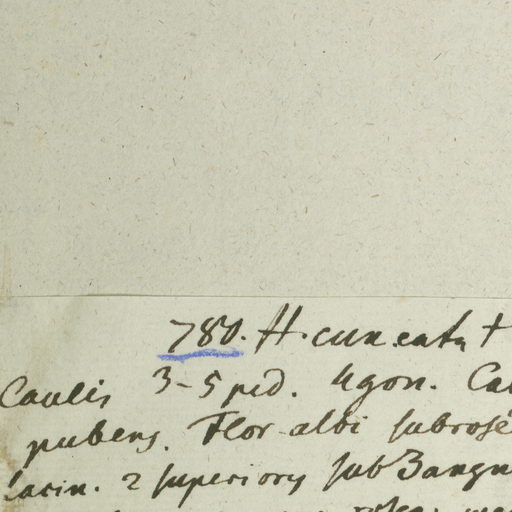 780. H. cuneata +
Caulis 3-5 ped. 4gon. Ca
pubens. Flor albi subrose
Lacin. 2 superiory sub3angu